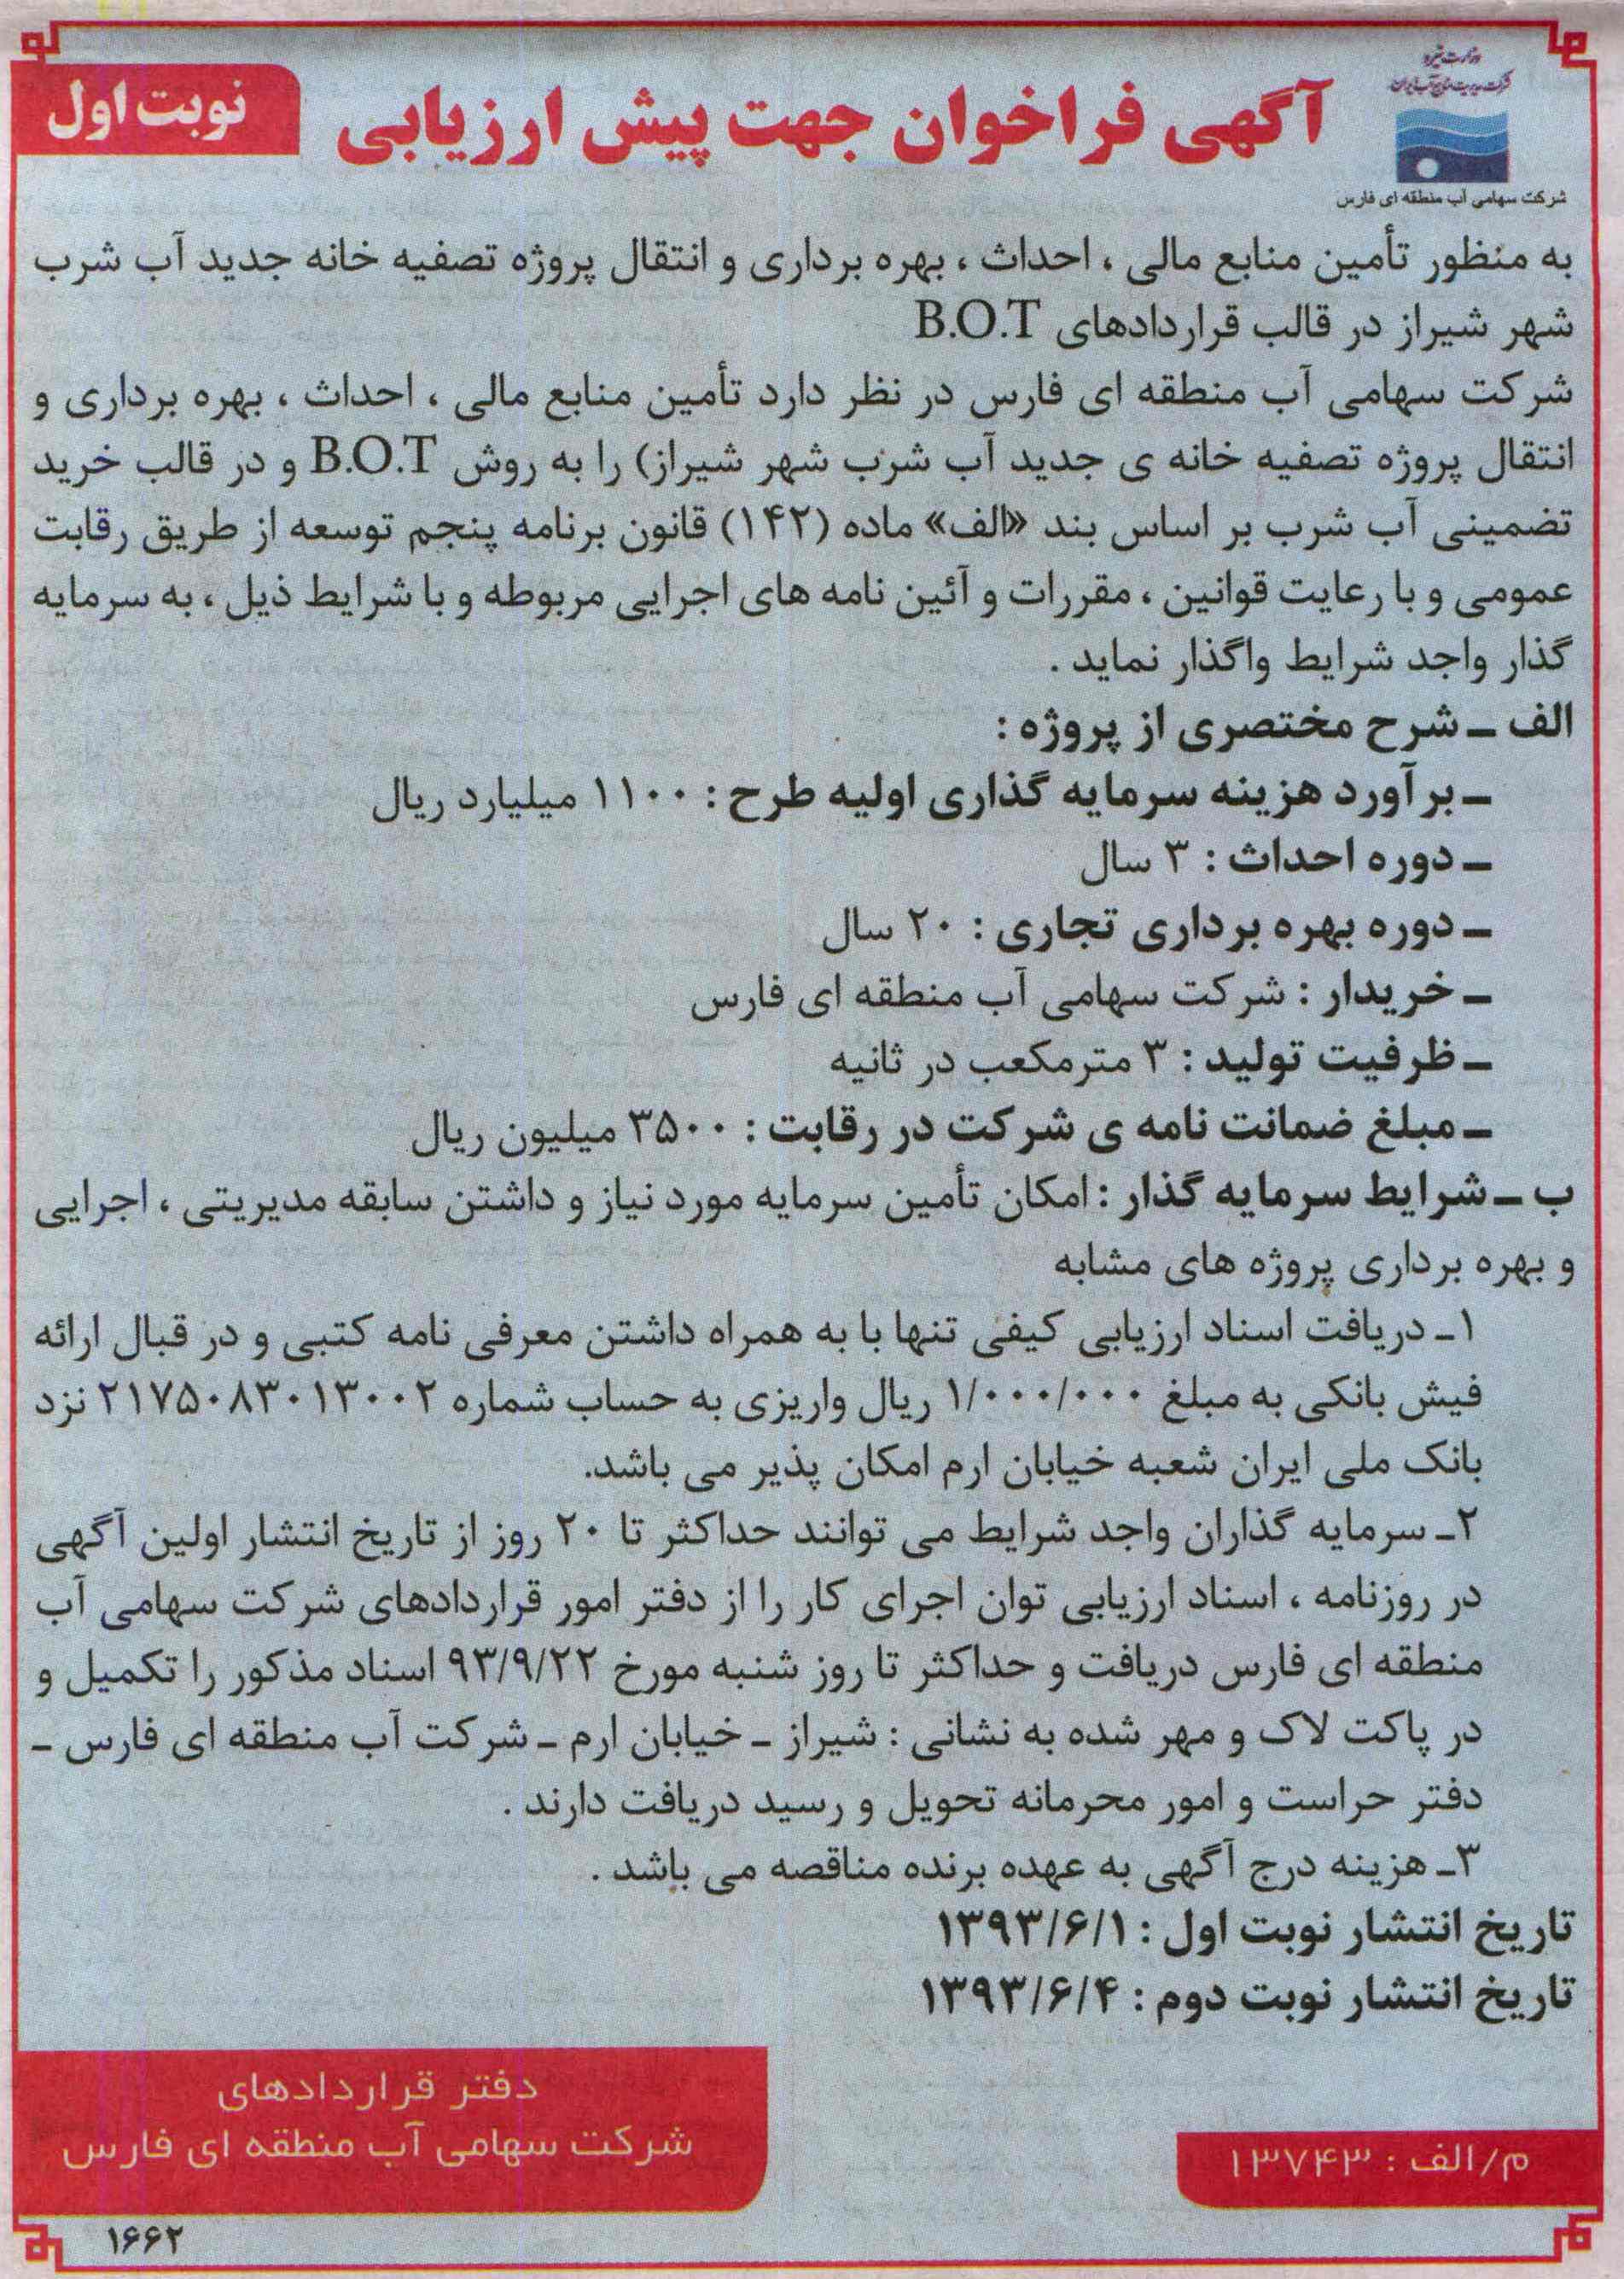 وزارت نیرو
شرکت مدیریت منابع آب ایران
شرکت سهامی آب منطقه ای فارس
آگهی فراخوان جهت پیش ارزیابی
نوبت اول
به منظور تأمین منابع مالی ، احداث ، بهره برداری و انتقال پروژه تصفیه خانه جدید آب شرب
شهر شیراز در قالب قراردادهای B.O.T
شرکت سهامی آب منطقه ای فارس در نظر دارد تأمین منابع مالی ، احداث ، بهره برداری و
انتقال پروژه تصفیه خانه ی جدید آب شرب شهر شیراز) را به روش B.O.T و در قالب خرید
تضمینی آب شرب بر اساس بند «الف» ماده (۱۴۲) قانون برنامه پنجم توسعه از طریق رقابت
عمومی و با رعایت قوانین ، مقررات و آئین نامه های اجرایی مربوطه و با شرایط ذیل ، به سرمایه
گذار واجد شرایط واگذار نماید .
الف ـ شرح مختصری از پروژه :
ـ برآورد هزینه سرمایه گذاری اولیه طرح : ۱۱۰۰ میلیارد ریال
ـ دوره احداث : ۳ سال
ـ دوره بهره برداری تجاری : ۲۰ سال
ـ خریدار : شرکت سهامی آب منطقه ای فارس
ـ ظرفیت تولید : ۳ مترمکعب در ثانیه
ـ مبلغ ضمانت نامه ی شرکت در رقابت : ۳۵۰۰ میلیون ریال
ب ـ شرایط سرمایه گذار : امکان تأمین سرمایه مورد نیاز و داشتن سابقه مدیریتی ، اجرایی
و بهره برداری پروژه های مشابه
۱ـ دریافت اسناد ارزیابی کیفی تنها با به همراه داشتن معرفی نامه کتبی و در قبال ارائه
فیش بانکی به مبلغ ۱/۰۰۰/۰۰۰ ریال واریزی به حساب شماره ۲۱۷۵۰۸۳۰۱۳۰۰۲ نزد
بانک ملی ایران شعبه خیابان ارم امکان پذیر می باشد.
۲ـ سرمایه گذاران واجد شرایط می توانند حداکثر تا ۲۰ روز از تاریخ انتشار اولین آگهی
در روزنامه ، اسناد ارزیابی توان اجرای کار را از دفتر امور قراردادهای شرکت سهامی آب
منطقه ای فارس دریافت و حداکثر تا روز شنبه مورخ ۹۳/۹/۲۲ اسناد مذکور را تکمیل و
در پاکت لاک و مهر شده به نشانی : شیراز ـ خیابان ارم ـ شرکت آب منطقه ای فارس ـ
دفتر حراست و امور محرمانه تحویل و رسید دریافت دارند .
۳ـ هزینه درج آگهی به عهده برنده مناقصه می باشد .
تاریخ انتشار نوبت اول : ۱۳۹۳/۶/۱
تاریخ انتشار نوبت دوم : ۱۳۹۳/۶/۴
دفتر قراردادهای
شرکت سهامی آب منطقه ای فارس
م/الف : ۱۳۷۴۳
۱۶۶۲